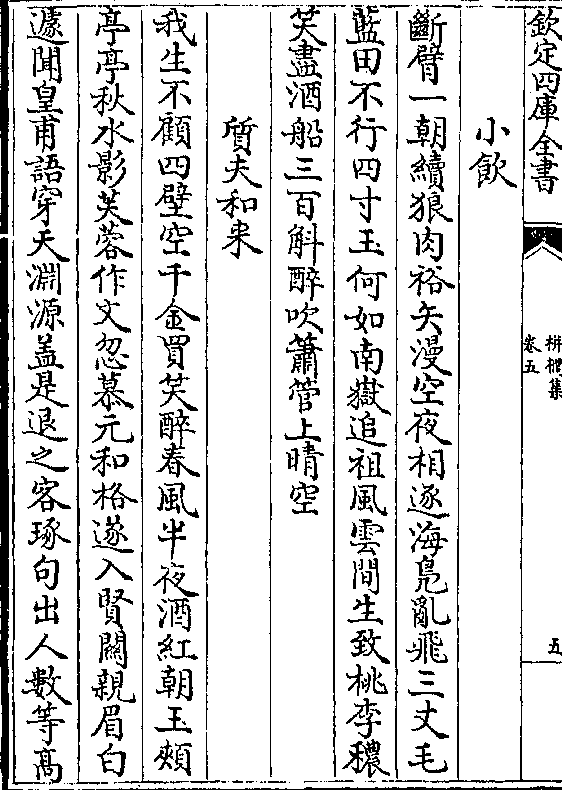 欽定四庫全書
栟櫚集
卷五
五
小飲
斷臂一朝續狼肉裕矢漫空夜相逐海鳬亂飛三丈毛
藍田不行四寸玉何如南嶽追祖風雲間生致桃李穠
笑盡酒船三百斛醉吹簫管上晴空
質夫和来
我生不顧四壁空千金買笑醉春風半夜酒紅朝玉頰
亭亭秋水影芙蓉作文忽慕元和格遂入賢關親眉白
遽聞皇甫語穿天淵源盖是退之客琢句出人數等髙